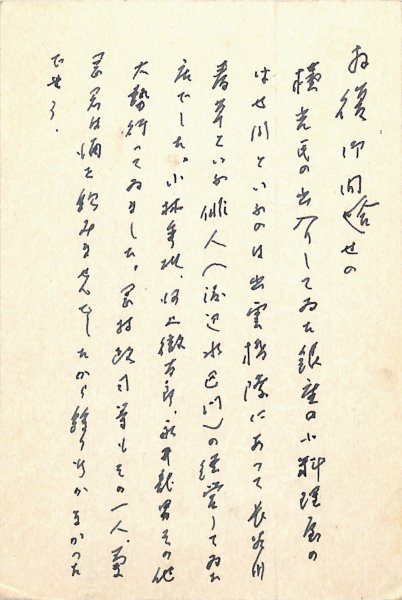 拝復 御問合せの
横光氏の出入してゐた銀座の小料理店の
はせ川といふのは出雲橋際にあつて長谷川
春草といふ俳人(渡辺水巴門)の経営してゐた
店でした。小林秀雄、河上徹太郎、永井龍男その他
大勢行つてゐました。岡村政司等もその一人、菊
岡君は酒を飲みませんでしたから餘り行かなかつた
でせう。